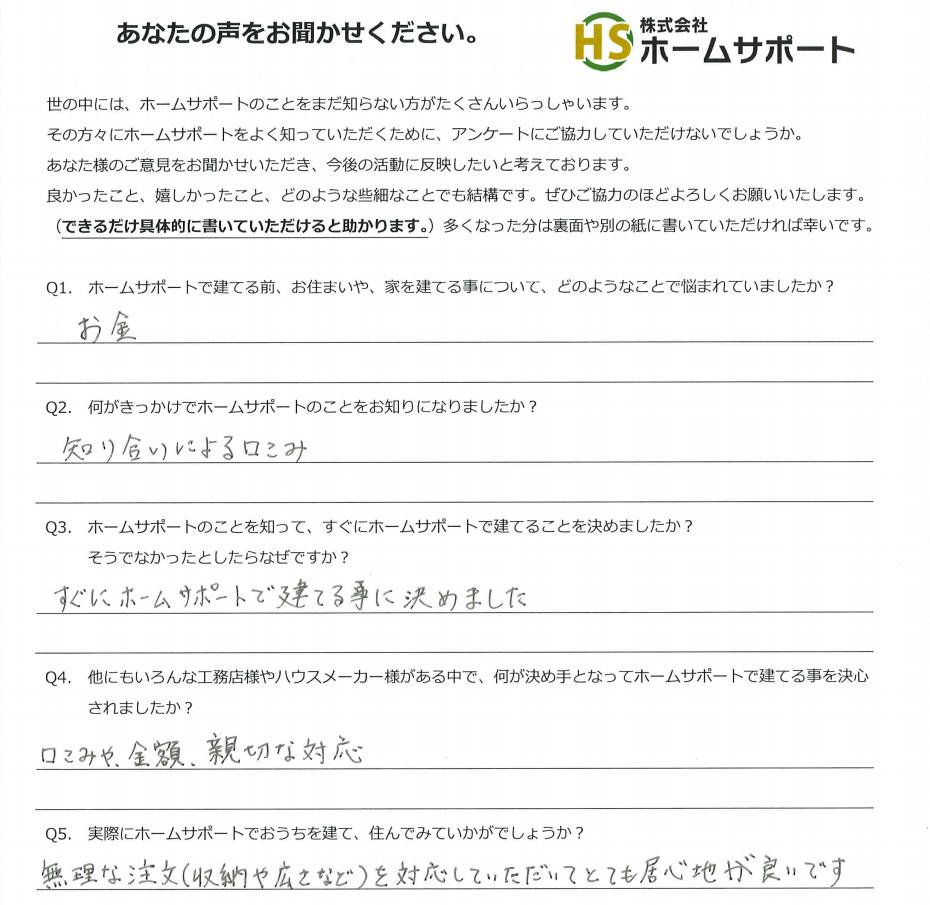 あなたの声をお聞かせください。
HS
株式会社
ホームサポート
世の中には、ホームサポートのことをまだ知らない方がたくさんいらっしゃいます。
その方々にホームサポートをよく知っていただくために、アンケートにご協力していただけないでしょうか。
あなた様のご意見をお聞かせいただき、今後の活動に反映したいと考えております。
良かったこと、嬉しかったこと、どのような些細なことでも結構です。ぜひご協力のほどよろしくお願いいたします。
（できるだけ具体的に書いていただけると助かります。）多くなった分は裏面や別の紙に書いていただければ幸いです。
Q1. ホームサポートで建てる前、お住まいや、家を建てる事について、どのようなことで悩まれていましたか？
お金
Q2. 何がきっかけでホームサポートのことをお知りになりましたか？
知り合いによる口こみ
Q3. ホームサポートのことを知って、すぐにホームサポートで建てることを決めましたか？
そうでなかったとしたらなぜですか？
すぐにホームサポートで建てる事に決めました
Q4. 他にもいろんな工務店様やハウスメーカー様がある中で、何が決め手となってホームサポートで建てる事を決心
されましたか？
口こみや、金額、親切な対応
Q5. 実際にホームサポートでおうちを建て、住んでみていかがでしょうか？
無理な注文(収納や広さなど)を対応していただいてとても居心地が良いです